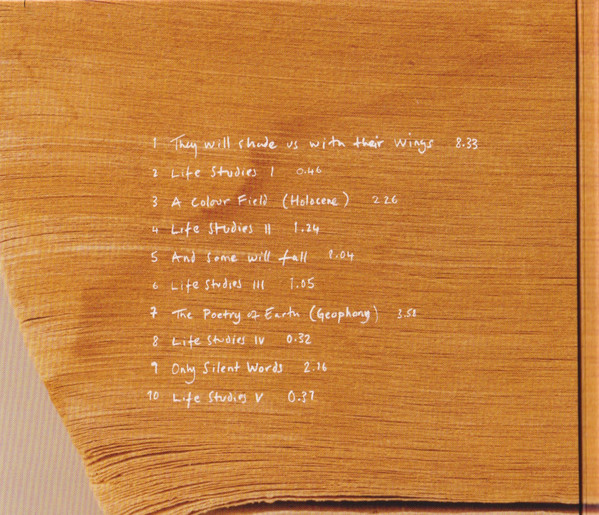 1 They will shade us with their wings 8.33
2 Life Studies I 0.46
3 A Colour Field (Holocene) 2.26
4 Life Studies II 1.24
5 And some will fall
6 Life Studies III 1.05
7 The Poetry of Earth (Geophony) 3.58
8 Life Studies IV 0.32
9 Only Silent Words 2.16
10 Life Studies V 0.37